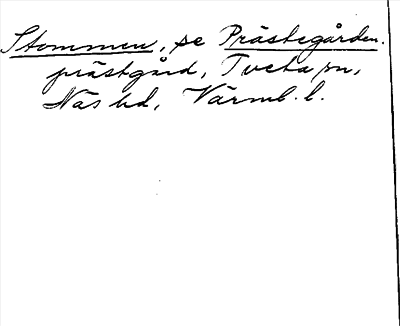 Stommen, se Prästegården.
prästgård, Tveta sn,
Näs hd, Värml. l.